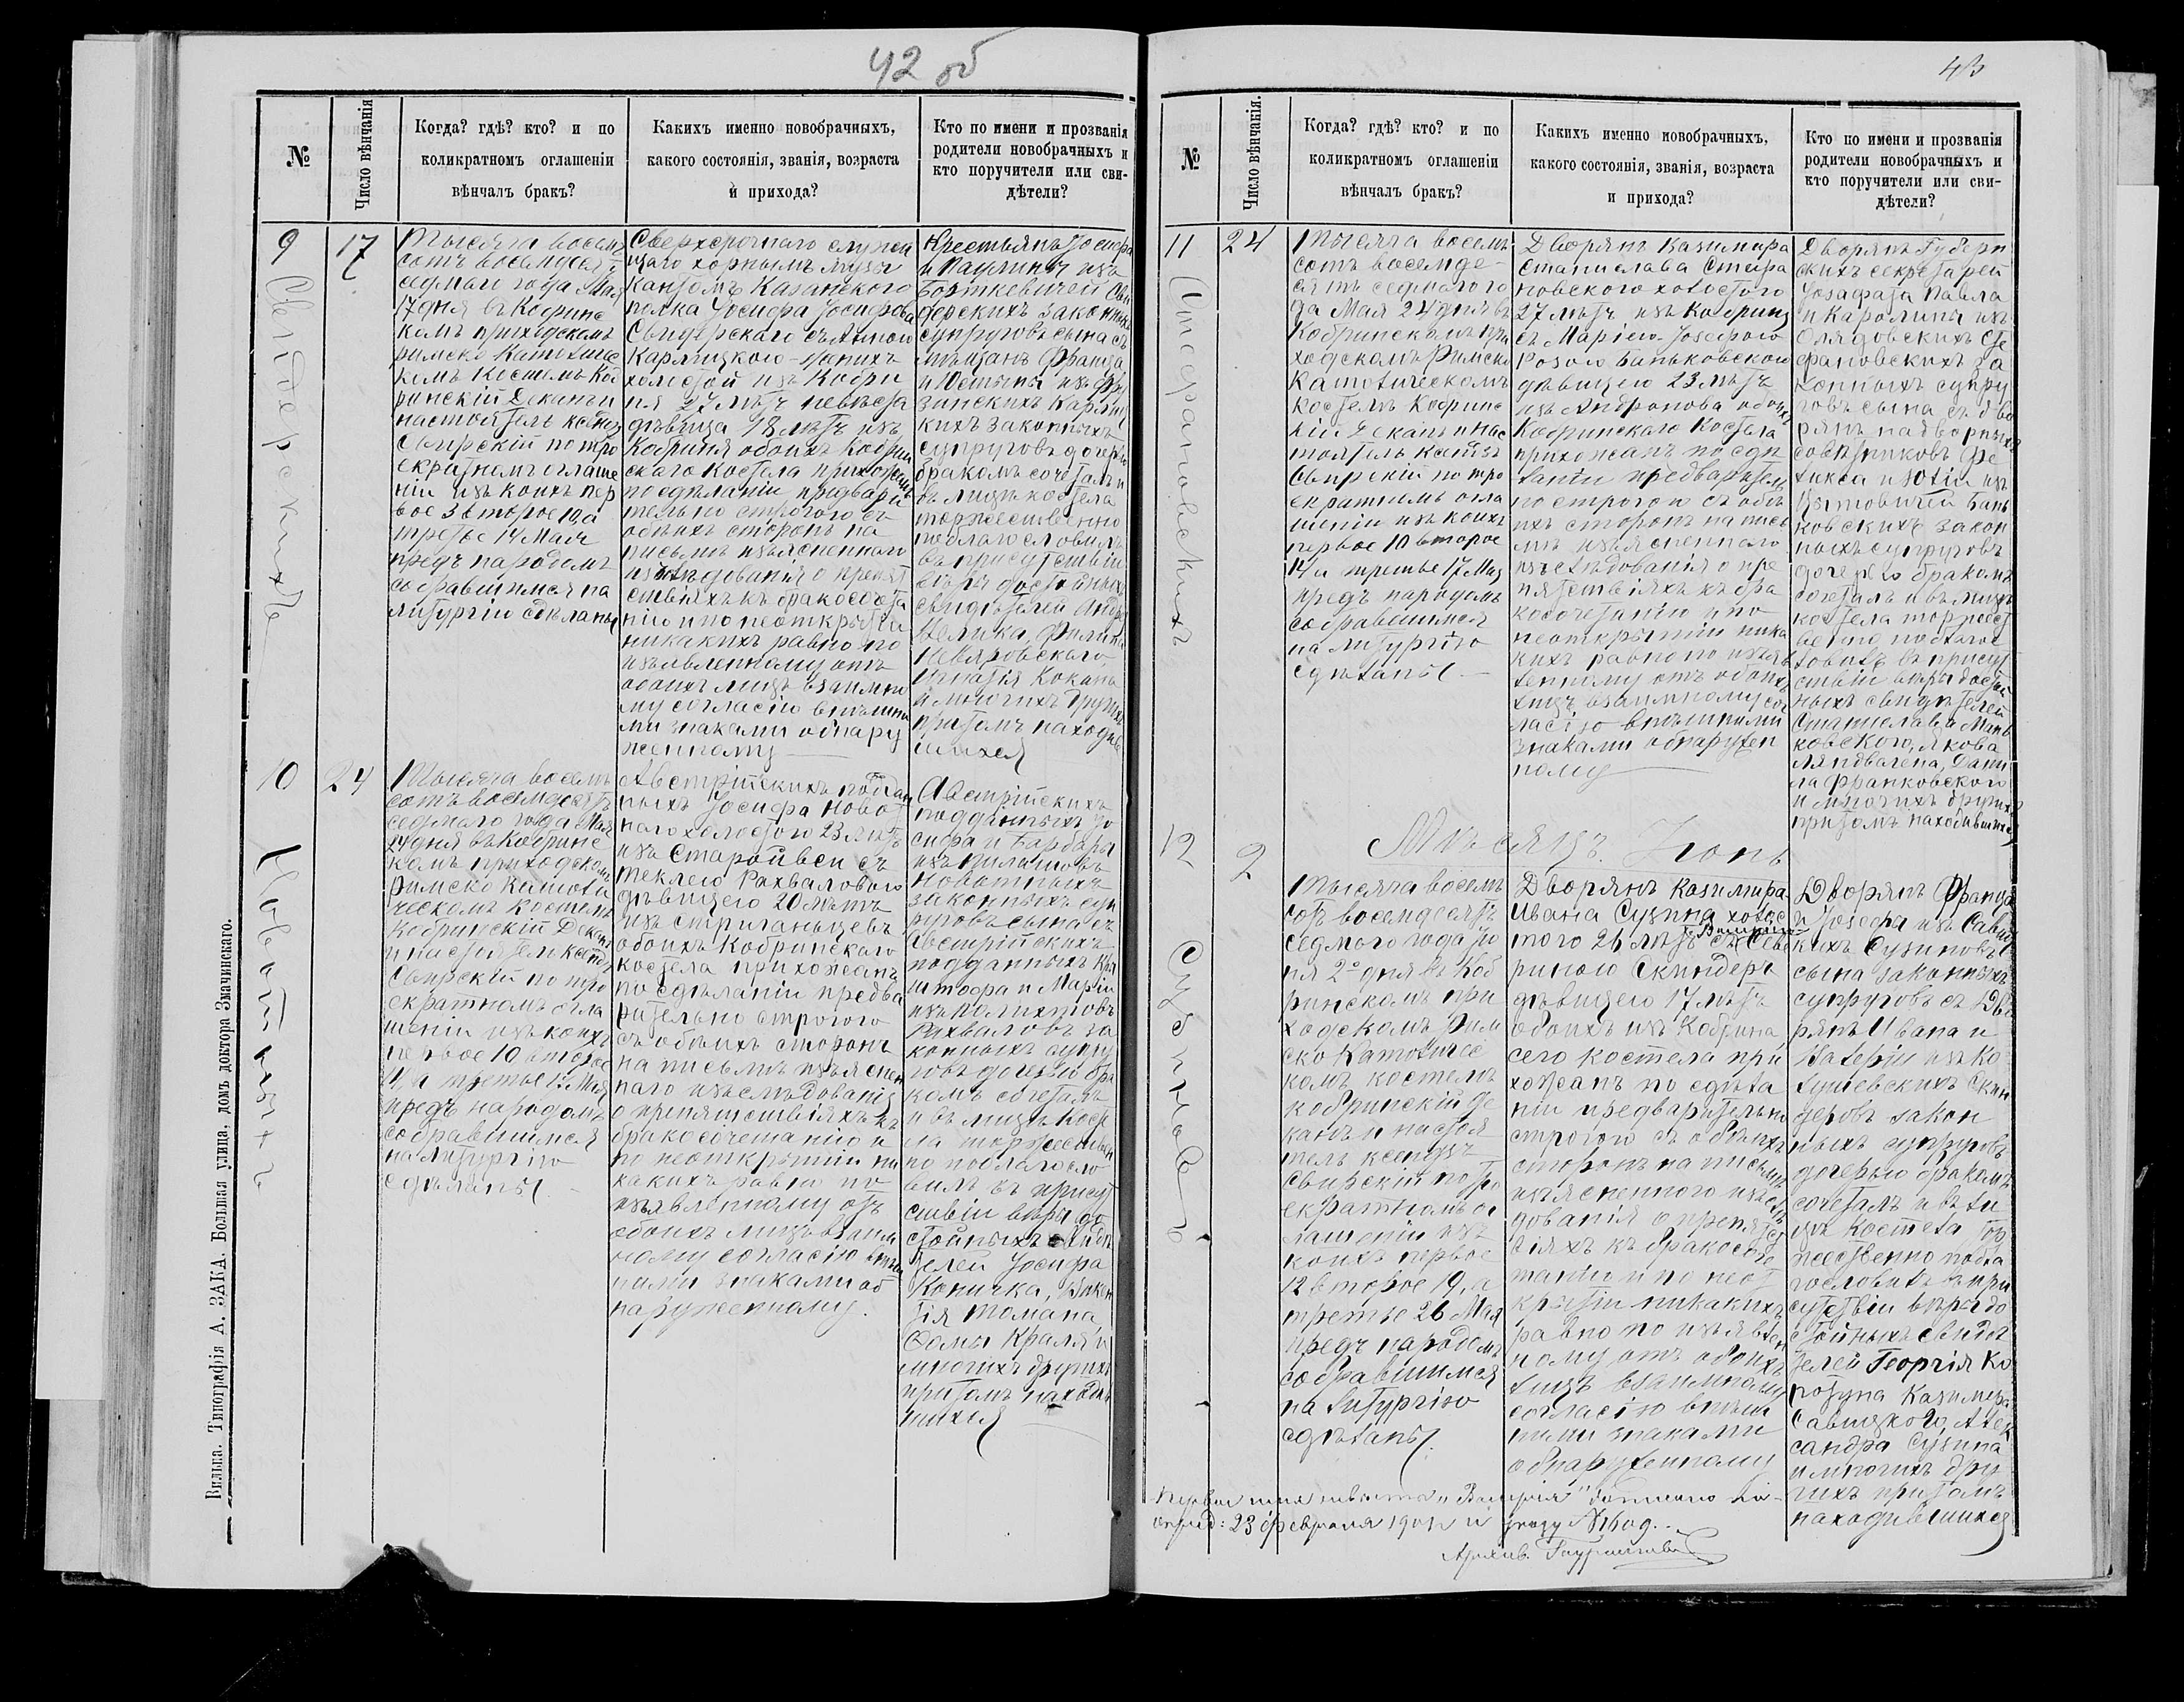 42 об
№
Число вѣнчанія
Когда? гдѣ? кто? и по
коликратномъ оглашеніи
вѣнчалъ бракъ?
Какихъ именно новобрачныхъ,
какого состоянія, званія, возраста
и прихода?
Кто по имени и прозванія
родители новобрачныхъ и
кто поручители или сви-
дѣтели?
9
17
Свидерскихъ
Тысяча восемь
сотъ восемдесятъ
седмаго года Мая
17 дня въ Кобринс
комъ приходскомъ
римско Католичес
комъ Костелѣ Коб
ринскій Деканъ и
настоятель ксендзъ
Свирскій по тро
екратномъ оглаше
ніи изъ коихъ пер
вое 3 второе 10, а
третье 14 Мая
предъ народомъ
собравшимся на
литургію сдѣланы
Сверхсрочнаго служа
щаго хорнымъ музы
кантомъ Казанского
полка Іосифа Іосифова
Свидерскаго съ Анною
Карлицкою - женихъ
холостой изъ Кобри
ня 27 лѣтъ невѣста
дѣвица 18 лѣтъ изъ
Кобриня обоихъ Кобрин
скаго костела прихожанъ
по сдѣланіи предвари
тельно строгого съ
обѣихъ сторонъ на
письмѣ изъясненнаго
изслѣдованія о препят
ствіяхъ къ бракосочета
нію и по неоткрытіи
никакихъ равно по
изъявленному отъ
обоихъ лицъ взаимно
му согласію внѣшни
ми знаками обнару
женному
Крестьянъ Іосифа
и Паулины изъ
Борткевичей Сви
дерскихъ законныхъ
супруговъ сына съ
мѣщанъ Франца
и Юстыны изъ
Карлиц
кихъ законныхъ
супруговъ дочерью
бракомъ сочеталъ и
въ лицѣ костела
торжественно
поблагословилъ
въ присутствіи
вѣры достойныхъ
свидѣтелей
Филипа
Невяровскаго,
Игнатія Кокана
и многихъ другихъ
притомъ находив
шихся
10
24
Новотныхъ
Тысяча восемь
сотъ восемдесятъ
седмаго года Мая
24 дня въ Кобринс
комъ приходскомъ
римско католи
ческомъ костелѣ
Кобринскій Деканъ
и настоятель ксендзъ
Свирскій по тро
екратномъ огла
шеніи изъ коихъ
первое 10 второе
14, а третье 17 Мая
предъ народомъ
собравшимся
на литургію
сдѣланы.
Австрійскихъ поддан
ныхъ Іосифа Новот
наго холостого 23 лѣтъ
изъ Старойвси съ
Теклею Рахваловою
дѣвицею 20 лѣтъ
изъ Стриганьцевъ
обоихъ Кобринскаго
костела прихожанъ
по сдѣланіи предва
рительно строгого
съ обѣихъ сторонъ
на письмѣ изъяснен
наго изслѣдованія
о препятствіяхъ къ
бракосочетанію и
по неоткрытіи ни
какихъ равно по
изъявленному отъ
обоихъ лицъ взаим
ному согласію внѣш
ними знаками об
наруженному.
Австрійскихъ
подданныхъ Іо
сифа и Барбары
изъ
Новотныхъ
законныхъ суп
руговъ сына съ
Австрійскихъ
подданныхъ Кри
штофа и Маріи
изъ
Рахваловъ за
конныхъ супру
говъ дочерью бра
комъ сочеталъ
и въ лицѣ Косте
ла торжествен
но поблагосло
вилъ въ присут
ствіи вѣры до
стойныхъ свидѣ
телей Іосифа
Коничка, Викен
тія Томана,
Фомы Краля и
многихъ другихъ
притомъ находив
шихся
Вильна. Типографія А. ЗАКА. Большая улица, домъ доктора Значинскаго.
43
№
Число вѣнчанія.
Когда? гдѣ? кто? и по
коликратномъ оглашеніи
вѣнчалъ бракъ?
Какихъ именно новобрачныхъ,
какого состоянія, званія, возраста
и прихода?
Кто по имени и прозванія
родители новобрачныхъ и
кто поручители или сви-
дѣтели?
11
24
Стефановскихъ
Тысяча восемь
сотъ восемде-
сятъ седмаго го
да Мая 24 дня въ
Кобринскомъ при
ходскомъ Римско
Католическомъ
костелѣ Кобринс
кій Деканъ и нас
тоятель ксендзъ
Свирскій по тро
екратномъ огла
шеніи изъ коихъ
первое 10 второе
14 и третье 17 Мая
предъ народомъ
собравшимся
на литургію
сдѣланы.
Дворянъ Казимира
Станислава Стефа
новскаго холостого
27 лѣтъ изъ Кобрина
съ Маріею-Іозефою
Розою Баньковскою
дѣвицею 23 лѣтъ
изъ Андронова обоихъ
Кобринскаго Костела
прихожанъ по сдѣ
ланіи предваритель
но строгого съ обѣ
ихъ сторонъ на пись
мѣ изъясненнаго
изслѣдованія о пре
пятствіяхъ къ бра
косочетанію и по
неоткрытіи ника
кихъ равно по изъяв
ленному отъ обоихъ
лицъ взаимному сог
ласію внѣшними
знаками обнаружен
ному
Дворянъ Губерн
скихъ секретарей
Іозафата Павла
и Каролины изъ
Олядовскихъ Сте
фановскихъ за
конныхъ супру
говъ сына съ дво
рянъ надворныхъ
совѣтниковъ Фе
ликса и Зофіи изъ
Бань
ковскихъ закон
ныхъ супруговъ
дочерью бракомъ
сочеталъ и въ лицѣ
костела торжест
венно поблагос
ловилъ въ присут
ствіи вѣры достой
ныхъ свидѣтелей
Станислава Мань
ковского, Якова
Дани
ла Франковского
и многихъ другихъ
притомъ находившихся
Мѣсяцъ. Іюнь
12
2
Сузиновъ
Тысяча восемь
сотъ восемдесятъ
седмого года Ію
ня 2го дня въ Коб
ринскомъ при
ходскомъ Рим
ско Католичес
комъ костелѣ
Кобринскій Де
канъ и настоя
тель ксендзъ
Свирскій по тро
екратномъ ог
лашеніи изъ
коихъ первое
12 второе 19, а
третье 26 Мая
предъ народомъ
собравшимся
на литургію
сдѣланы.
Дворянъ Казимира
Ивана Сузина холос
того 26 лѣтъ съ Севе
риною Скиндеръ
дѣвицею 17 лѣтъ
обоихъ изъ Кобрина,
сего костела при
хожанъ по сдѣла
ніи предварительно
строгого съ обѣихъ
сторонъ на письмѣ
изъясненного изслѣ
дованія о препятст
віяхъ къ бракосоче
танію и по неот
крытіи никакихъ
равно по изъявлен
ному отъ обоихъ
лицъ взаимному
согласію внѣш
ними знаками
обнаруженному
Дворянъ Франца
и Іозефы изъ Савиц
кихъ Сузиновъ
сына законныхъ
супруговъ съ Дво
рянъ Ивана и
Валеріи изъ Ко
Скин
деровъ закон
ныхъ супруговъ
дочерью бракомъ
сочеталъ и въ ли
цѣ Костела тор
жественно побла
гословилъ въ при
сутствіи вѣры до
стойныхъ свидѣ
телей Георгія Ко
Казимира
Савицкого, Алек
сандра Сузина
и многихъ дру
гихъ притомъ
находившихся
Первое имя невѣсты „Валерія“ по-
опред: 23 февраля 1901 и указу № 1609.
Архив.